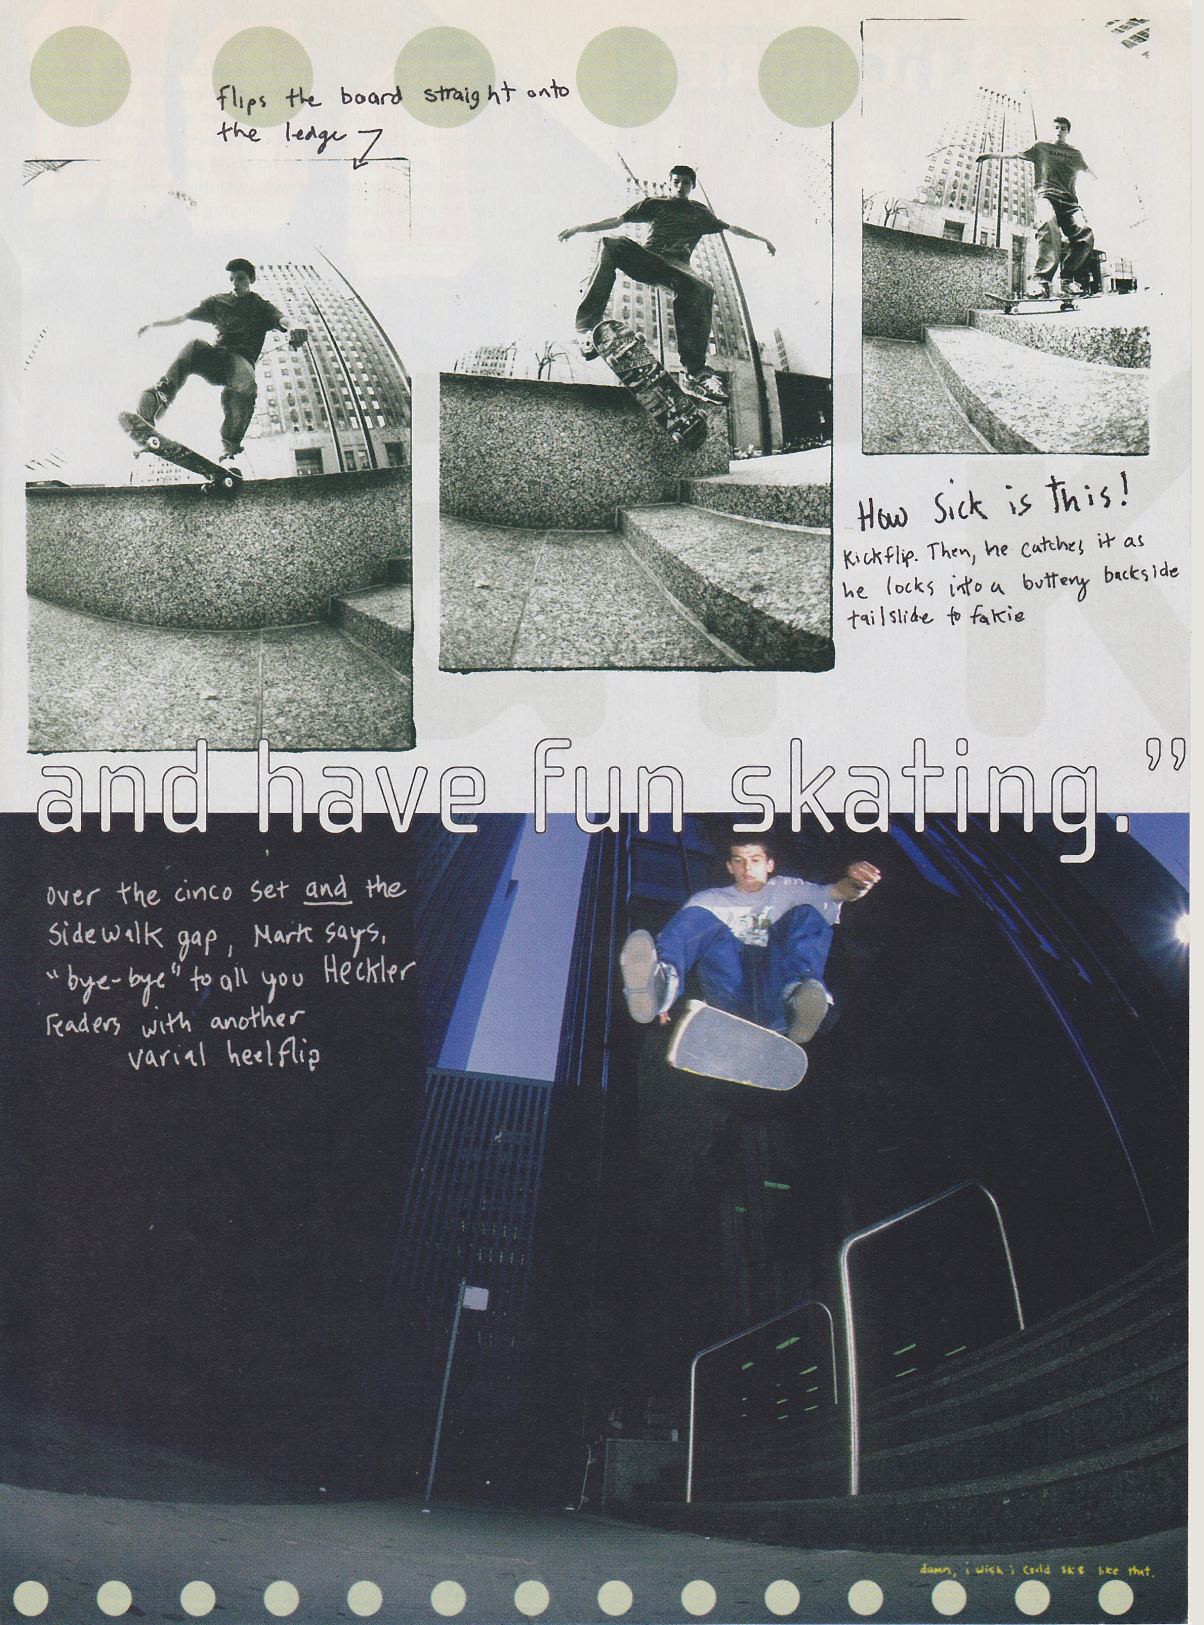 flips the board straight onto
the ledge
How Sick is this!
Kickflip. Then, he catches it as
he locks into a buttery backside
tailslide to fakie
and have fun skating.”
over the cinco set and the
sidewalk gap, Mark says,
"bye-bye" to all you Heckler
readers with another
varial heelflip
damn, i wish i could sk8 like that.